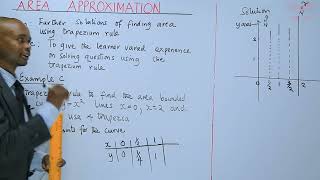 AREA APPROXIMATION
Further Solutions of finding area
using trapezium rule
To give the learner varied experience
in solving questions using the
trapezium rule
Example C
rule to find the area bounded
= x² lines x=0, x=2 and
use 4 trapezia
for the curve
x 0 ½ 1
y 0 ¼ 1
Solution
y
2
1
0 ½ 1 2